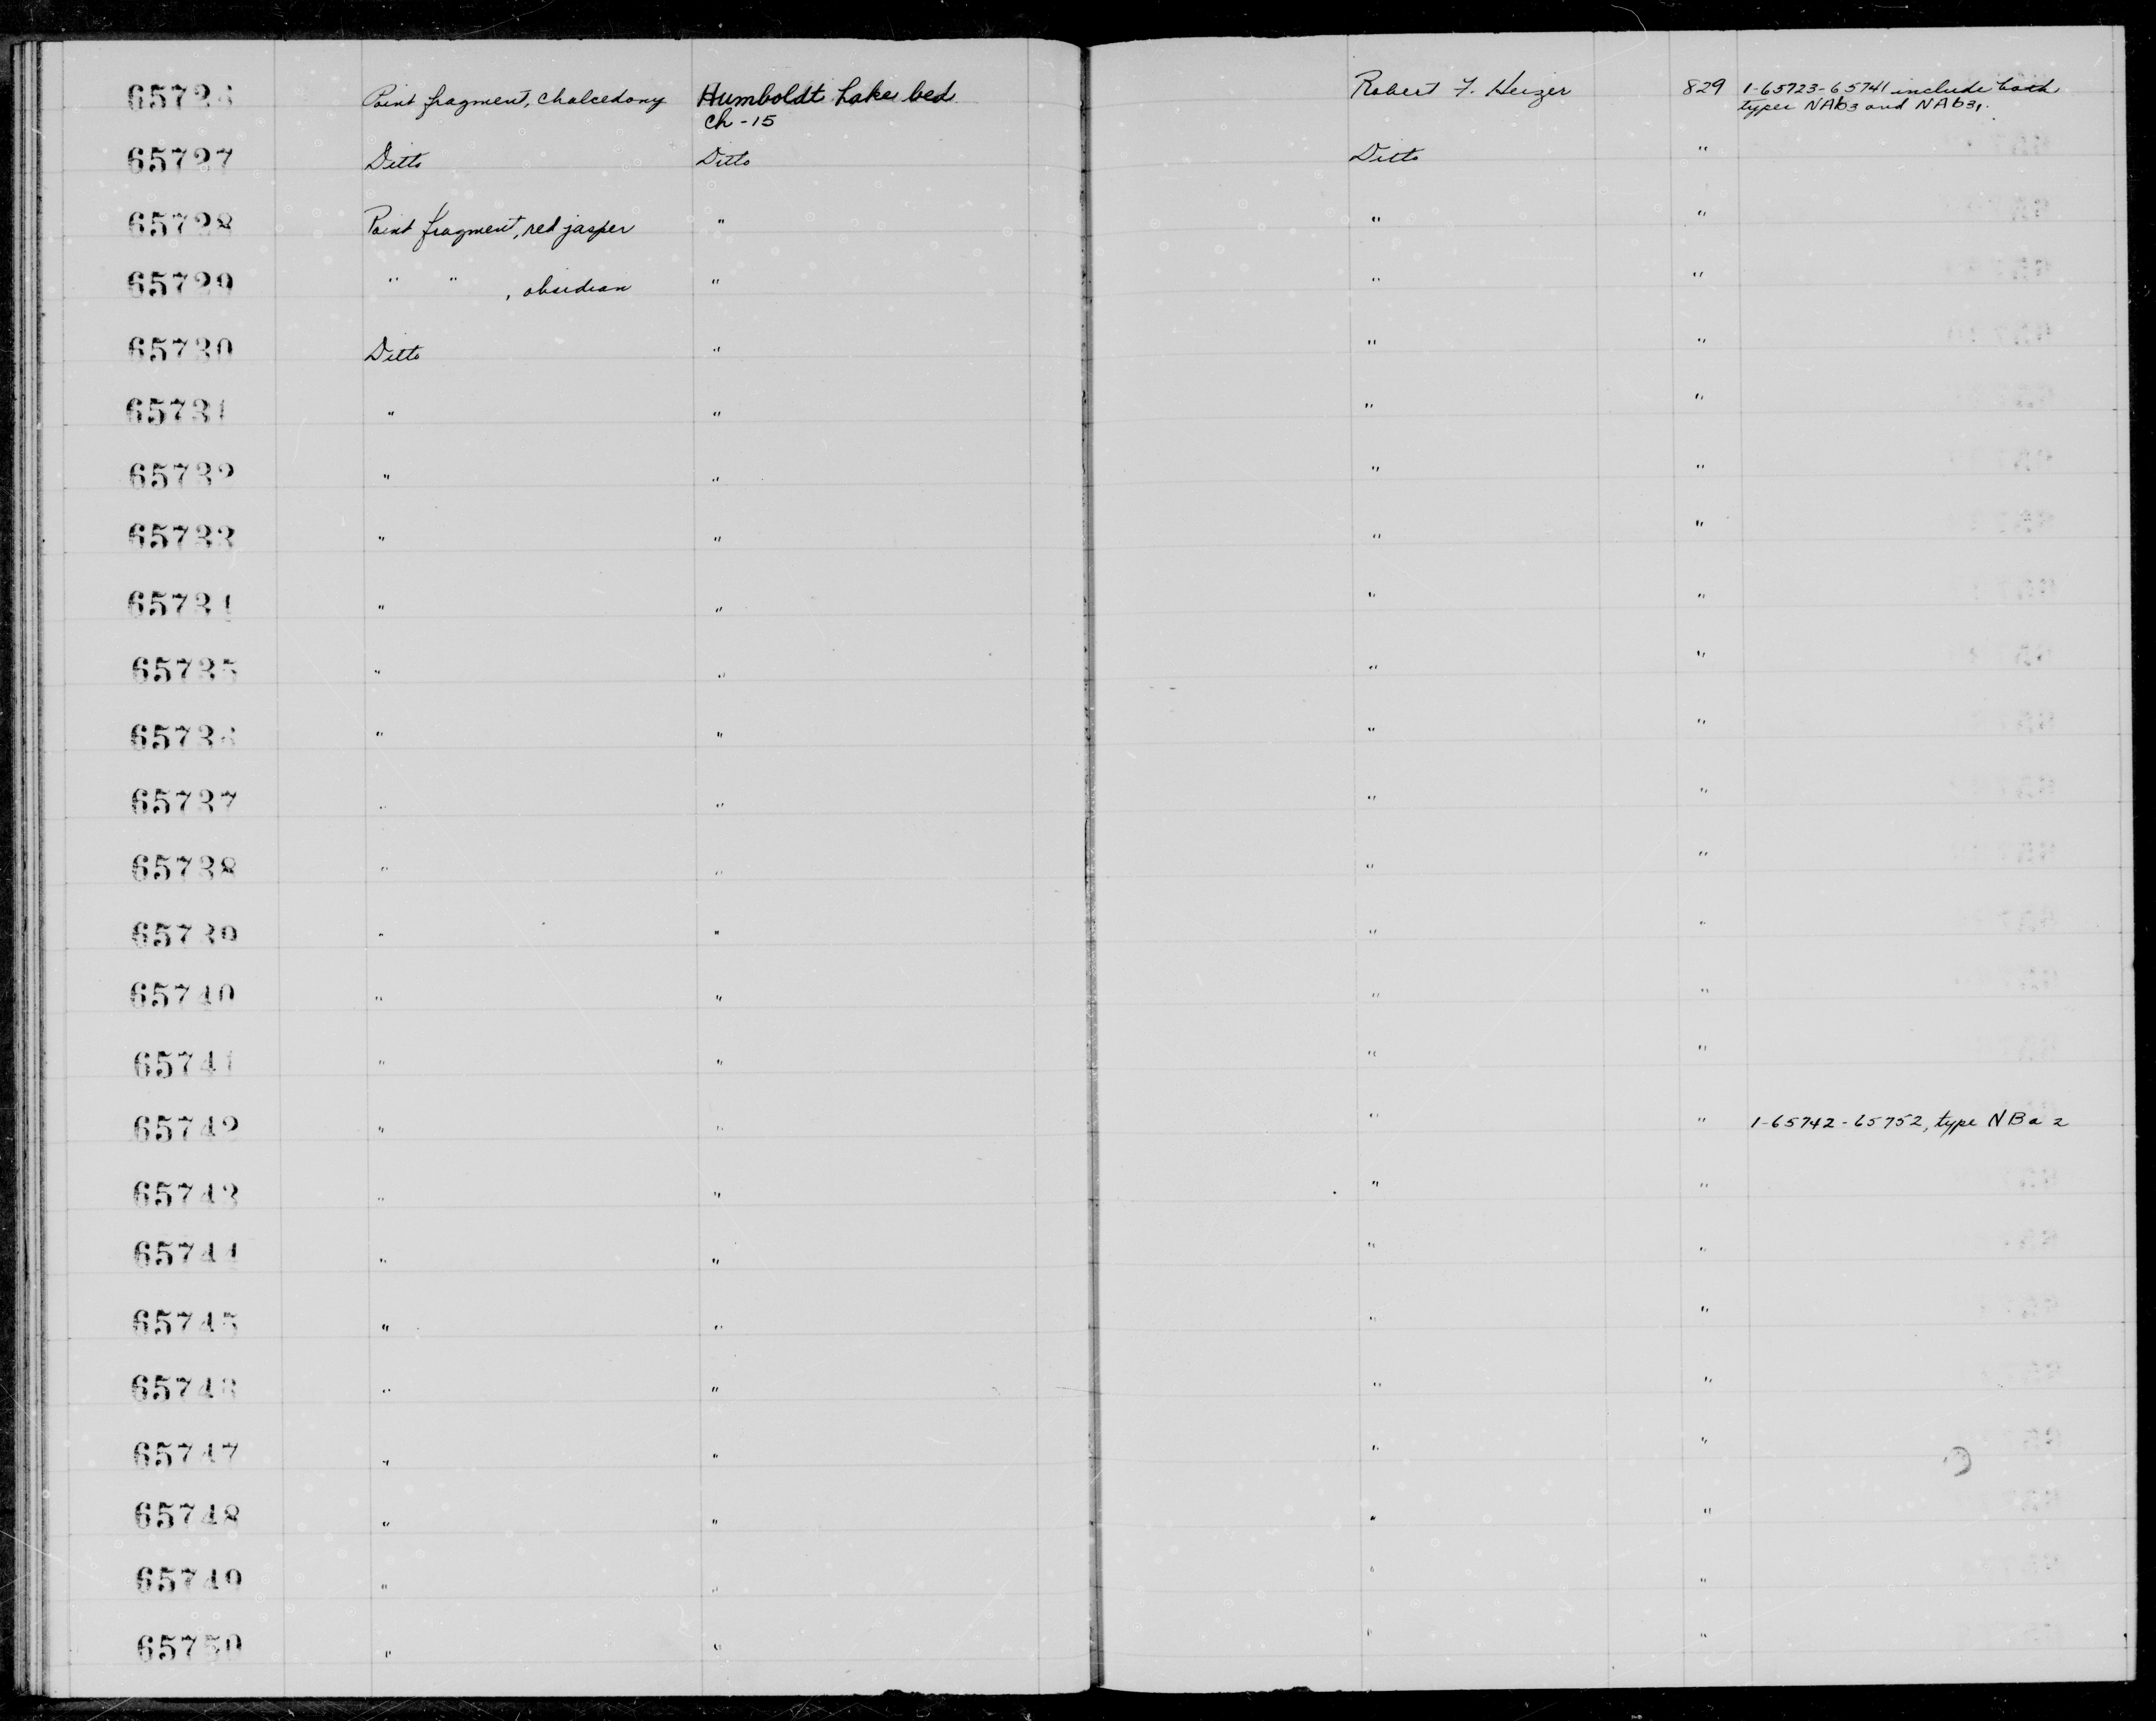 65726 Point fragment, chalcedony Humboldt Lake bed Robert F. Heizer 829 1-65723-65741 include both
Ch-15 types NAb3 and NAb31.
65727 Ditto Ditto Ditto "
65728 Point fragment, red jasper " " "
65729 " " , obsidian " " "
65730 Ditto " " "
65731 " " " "
65732 " " " "
65733 " " " "
65734 " " " "
65735 " " " "
65736 " " " "
65737 " " " "
65738 " " " "
65739 " " " "
65740 " " " "
65741 " " " "
65742 " " " " 1-65742-65752, type NBa2
65743 " " " "
65744 " " " "
65745 " " " "
65746 " " " "
65747 " " " "
65748 " " " "
65749 " " " "
65750 " " " "